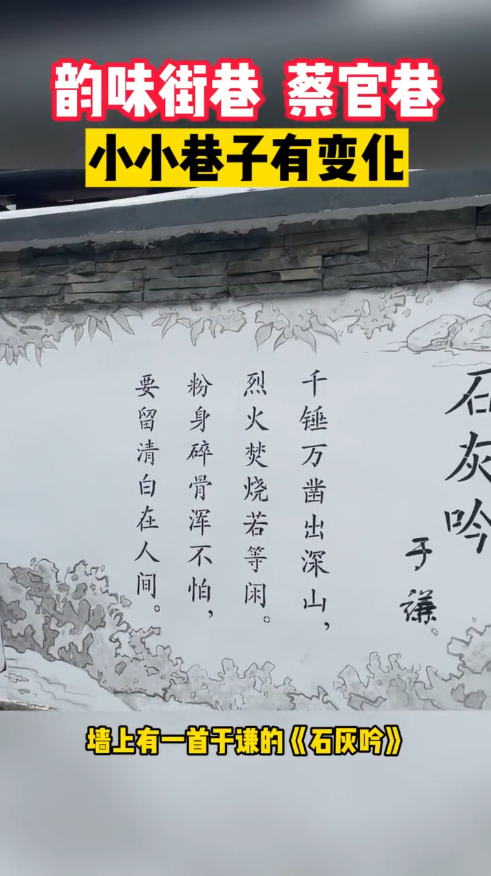 韵味街巷 蔡官巷
小小巷子有变化
石灰吟
于谦
千锤万凿出深山，
烈火焚烧若等闲。
粉身碎骨浑不怕，
要留清白在人间。
墙上有一首于谦的《石灰吟》